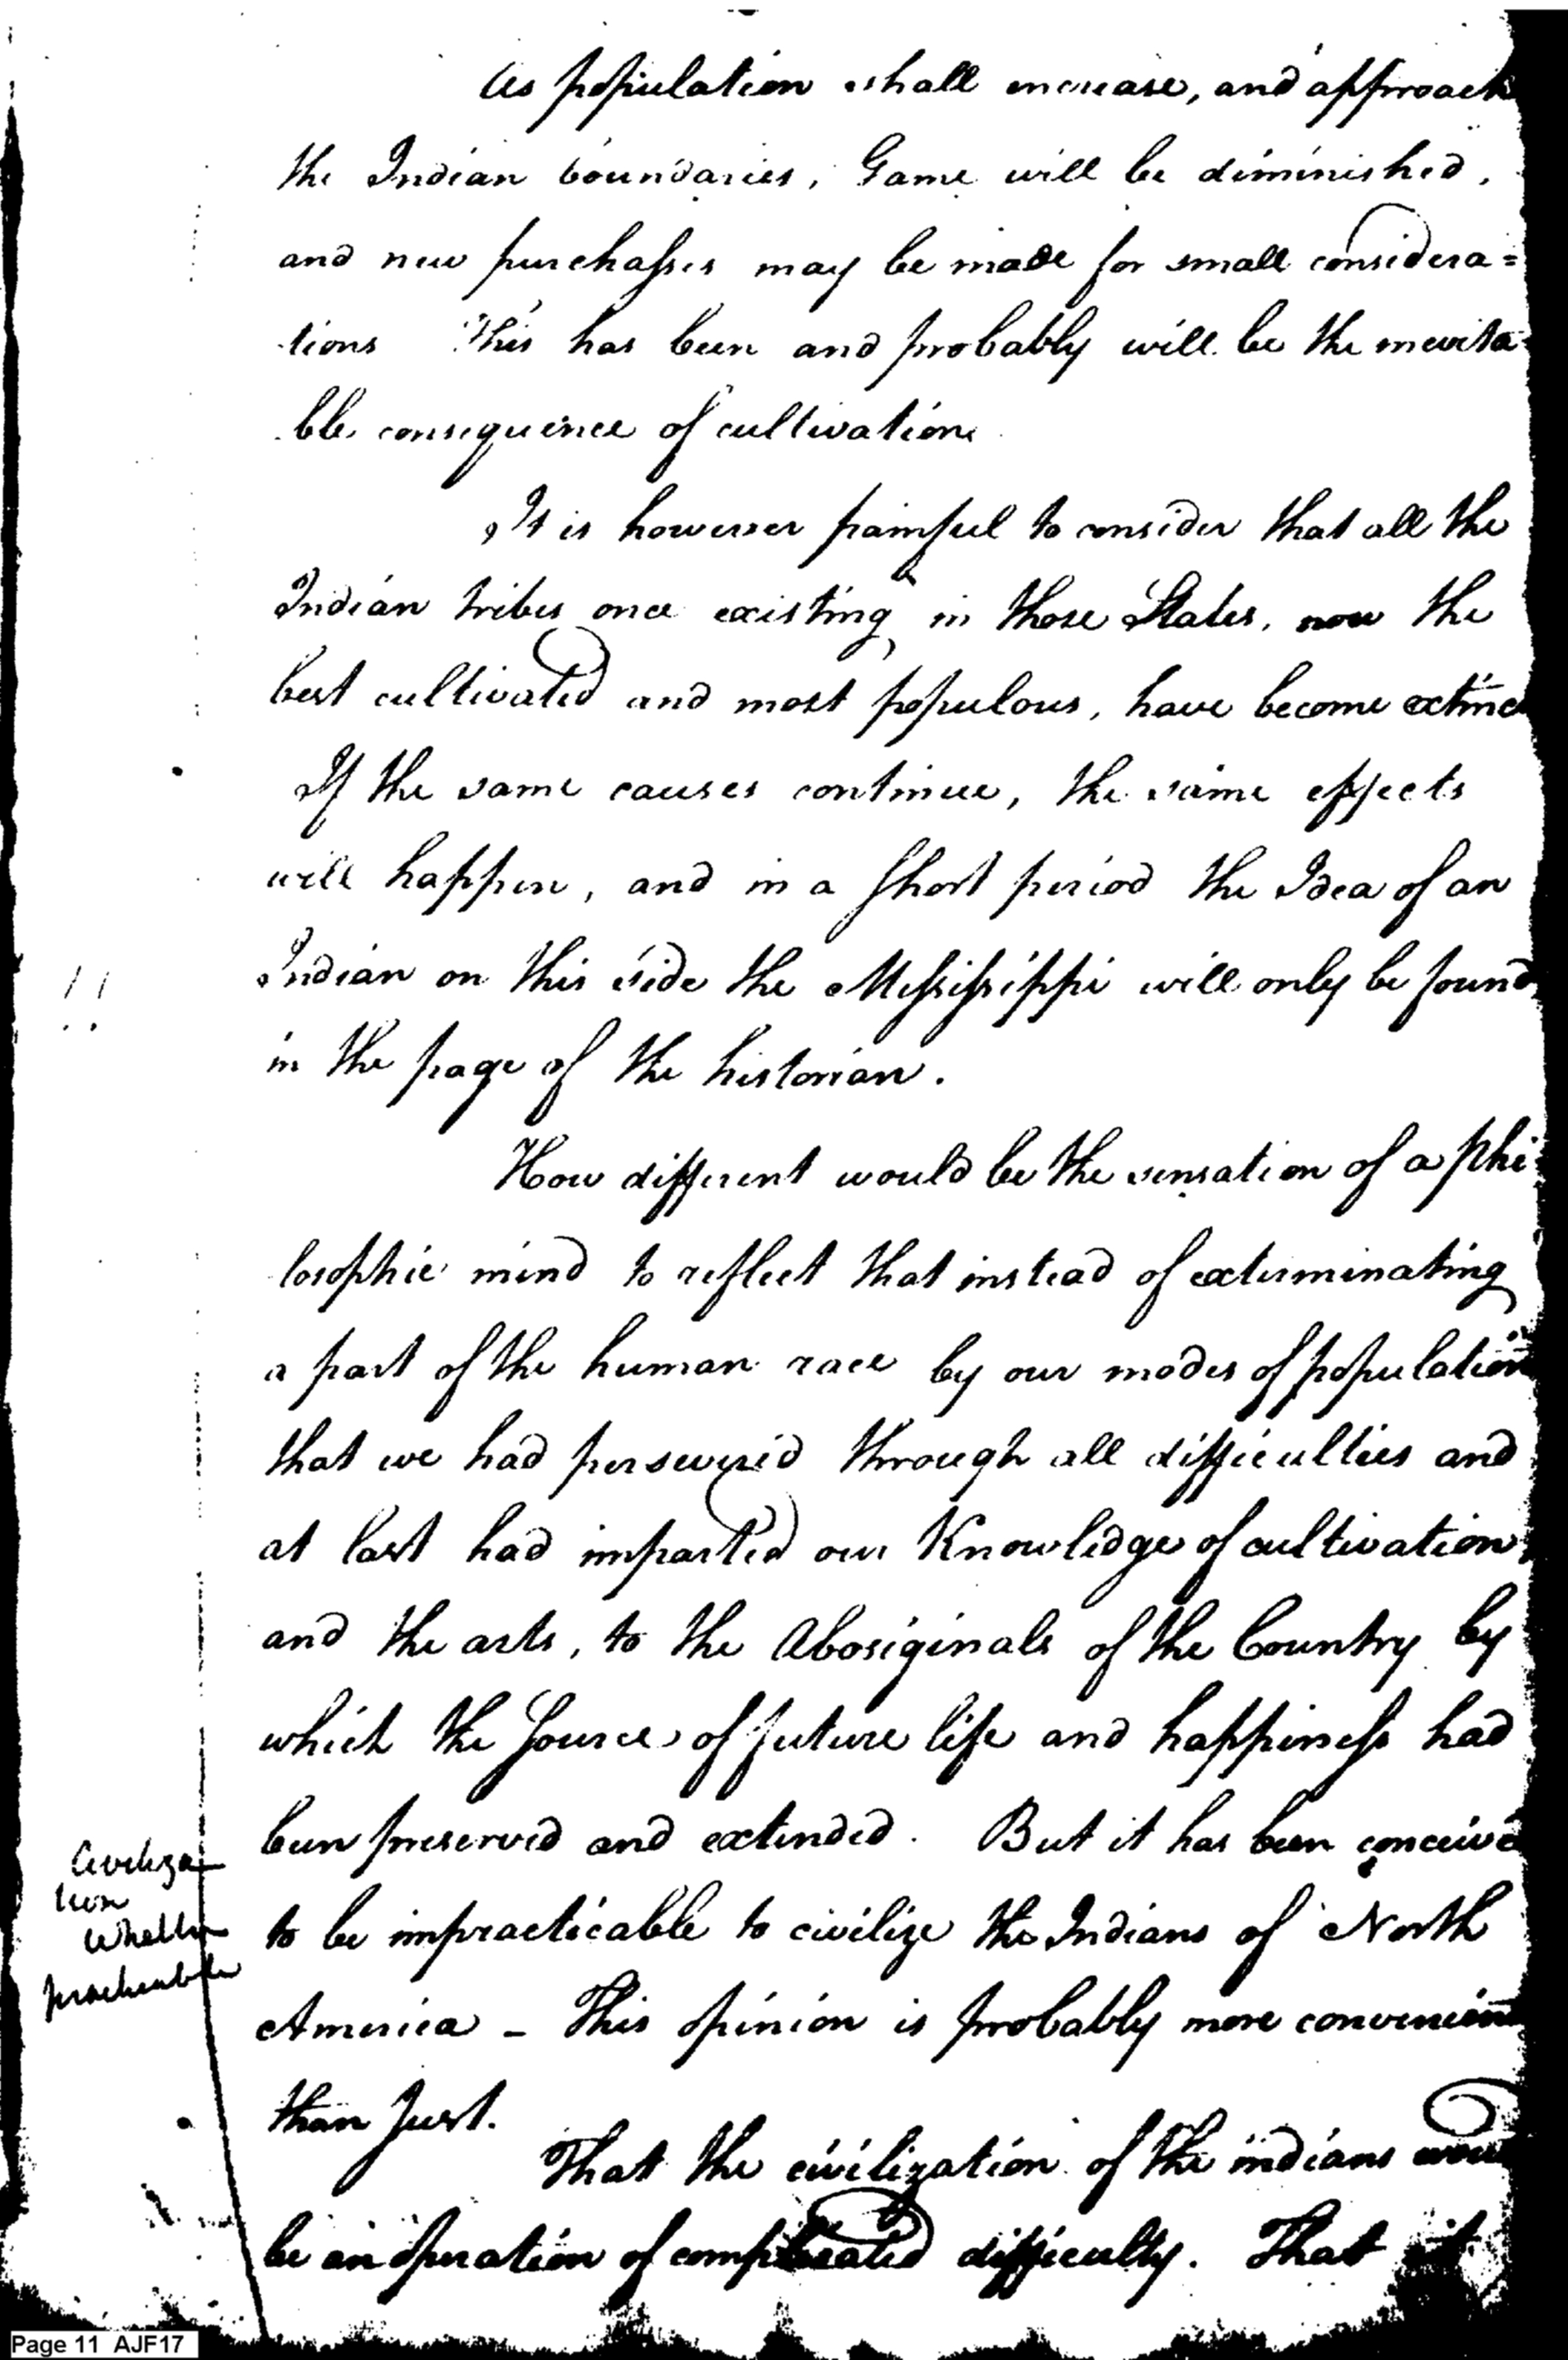 As population shall increase, and approach
the Indian boundaries, Game will be diminished,
and new purchasses may be made for small considera=
tions This has been and probably will be the inevita=
ble consequence of cultivation
It is however painful to consider that all the
Indian tribes once existing in those States, now the
best cultivated and most populous, have become extinc
If the same causes continue, the same effects
will happen, and in a short period the Idea of an
Indian on this side the Mississippi will only be found
!!
in the page of the historian.
How different would be the sensation of a phi
losophic mind to reflect that instead of exterminating
a part of the human race by our modes of population
that we had persevered through all difficulties and
at last had imparted our Knowledge of cultivation,
and the arts, to the Aboriginals of the Country by
which the Source of future life and happiness had
been preserved and extended. But it has been conceived
to be impracticable to civilize the Indians of North
America – This opinion is probably more convenient
than Just.
Civiliza
tion
Whether
practicable
That the civilization of the indians would
be an operation of complicated difficulty. That it
Page 11 AJF17